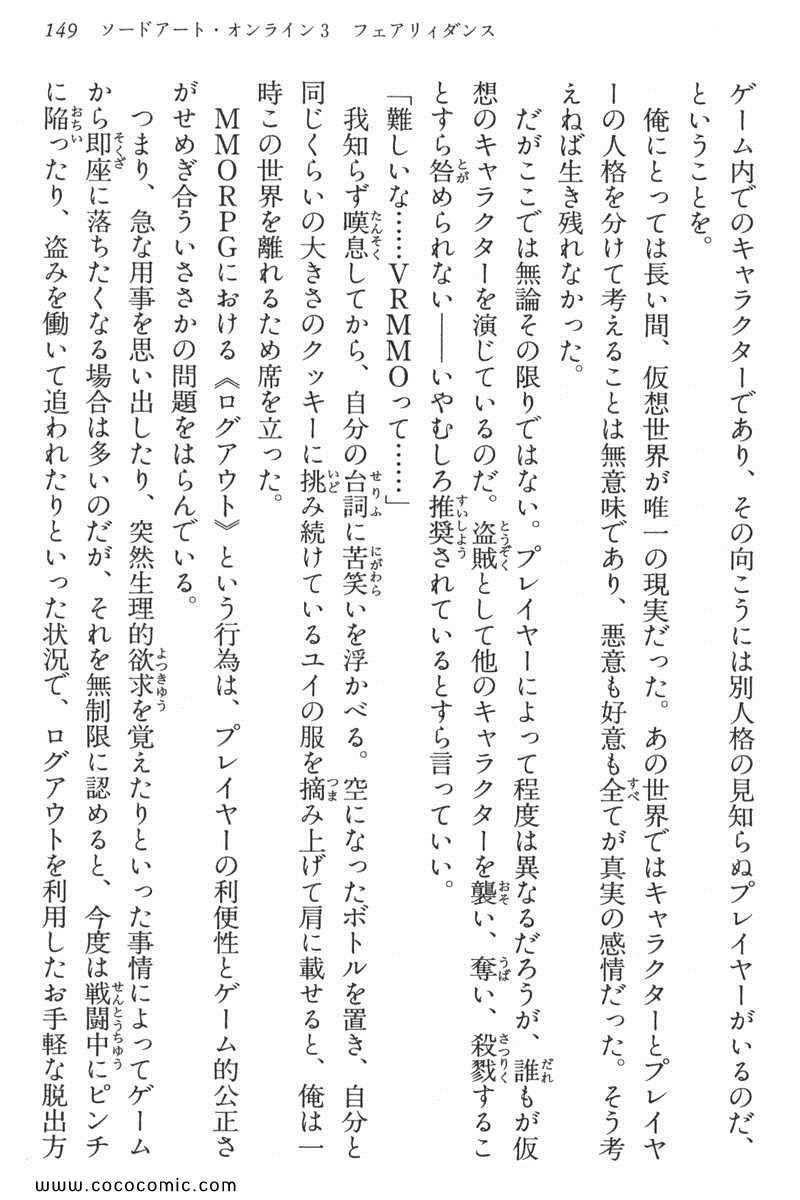 149 ソードアート・オンライン3 フェアリィダンス
ゲーム内でのキャラクターであり、その向こうには別人格の見知らぬプレイヤーがいるのだ、
ということを。
俺にとっては長い間、仮想世界が唯一の現実だった。あの世界ではキャラクターとプレイヤ
ーの人格を分けて考えることは無意味であり、悪意も好意も全てが真実の感情だった。そう考
えねば生き残れなかった。
だがここでは無論その限りではない。プレイヤーによって程度は異なるだろうが、誰もが仮
想のキャラクターを演じているのだ。盗賊として他のキャラクターを襲い、奪い、殺戮するこ
とすら咎められない――いやむしろ推奨されているとすら言っていい。
「難しいな……VRMMOって……」
我知らず嘆息してから、自分の台詞に苦笑いを浮かべる。空になったボトルを置き、自分と
同じくらいの大きさのクッキーに挑み続けているユイの服を摘み上げて肩に載せると、俺は一
時この世界を離れるため席を立った。
MMORPGにおける《ログアウト》という行為は、プレイヤーの利便性とゲーム的公正さ
がせめぎ合ういささかの問題をはらんでいる。
つまり、急な用事を思い出したり、突然生理的欲求を覚えたりといった事情によってゲーム
から即座に落ちたくなる場合は多いのだが、それを無制限に認めると、今度は戦闘中にピンチ
に陥ったり、盗みを働いて追われたりといった状況で、ログアウトを利用したお手軽な脱出方
www.cococomic.com